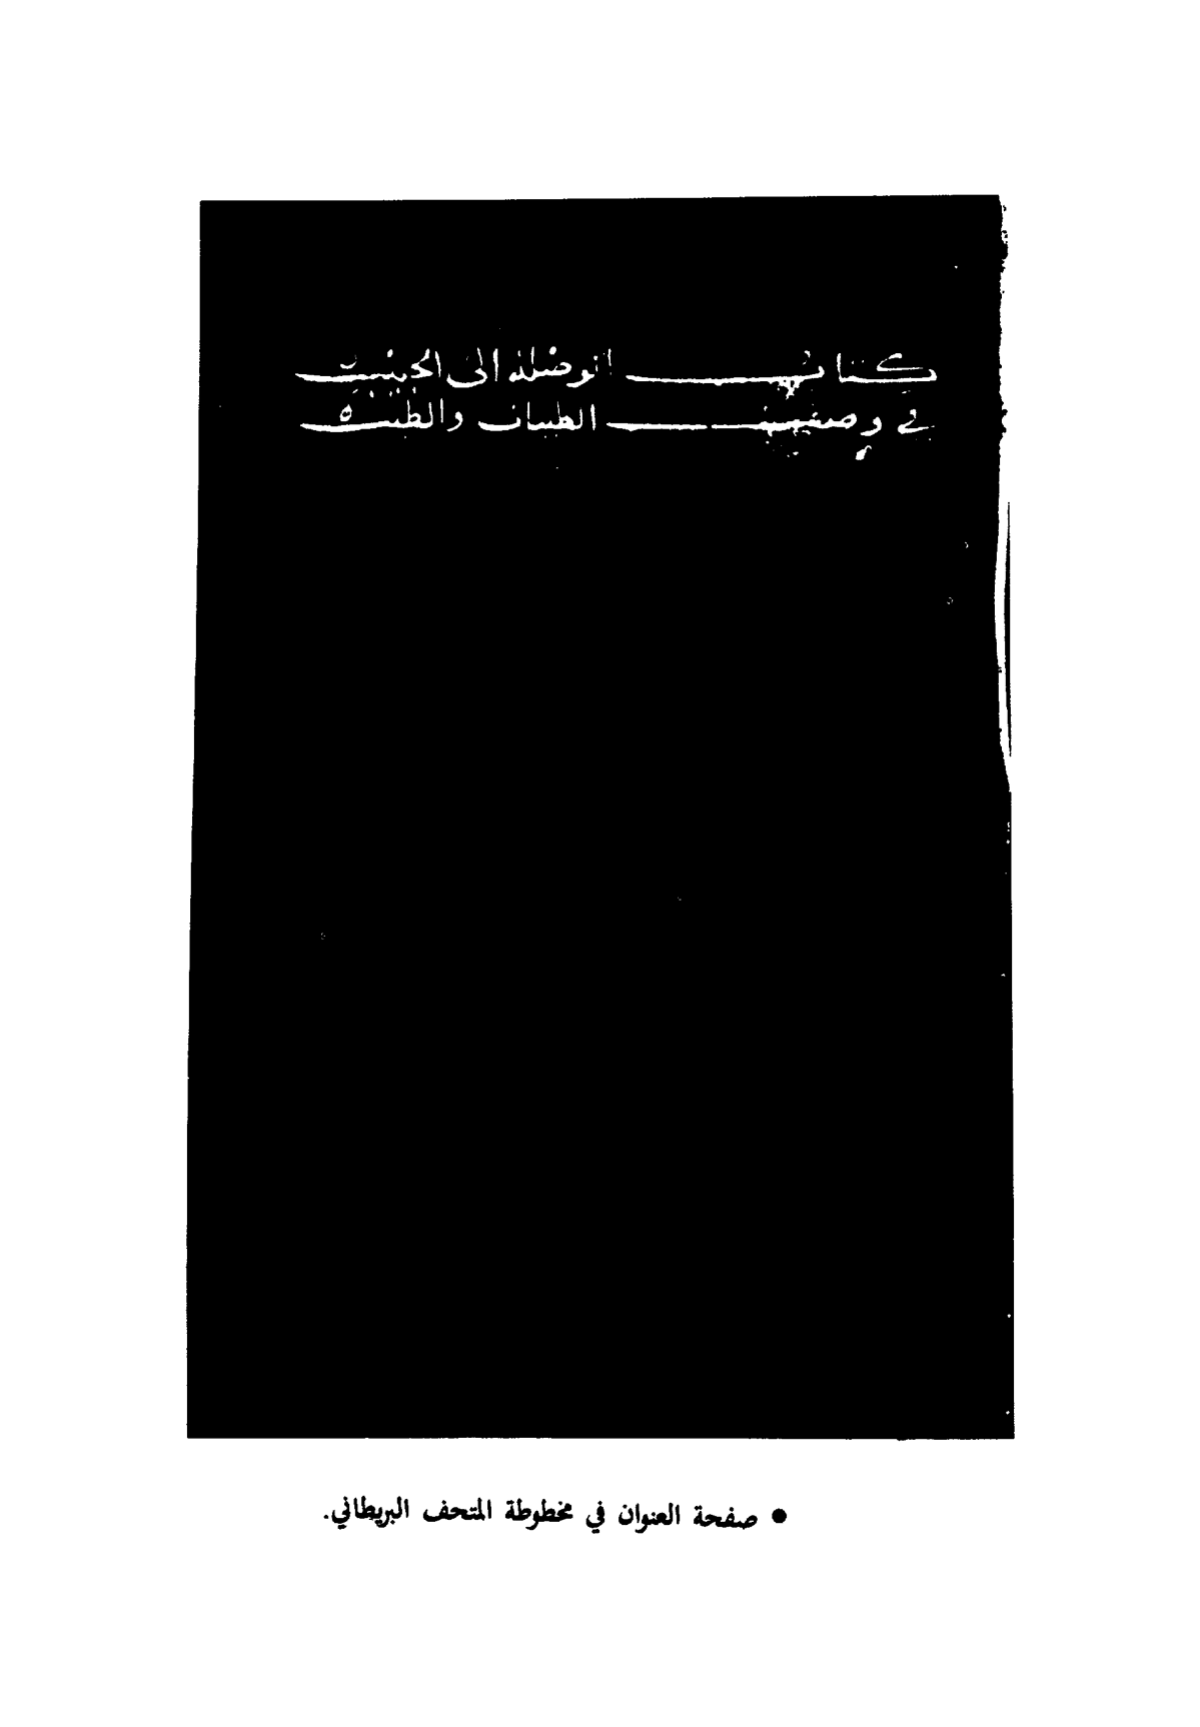 كتاب الوصلة الى الحبيب
في وصف الطيبات والطيب
● صفحة العنوان في مخطوطة المتحف البريطاني.